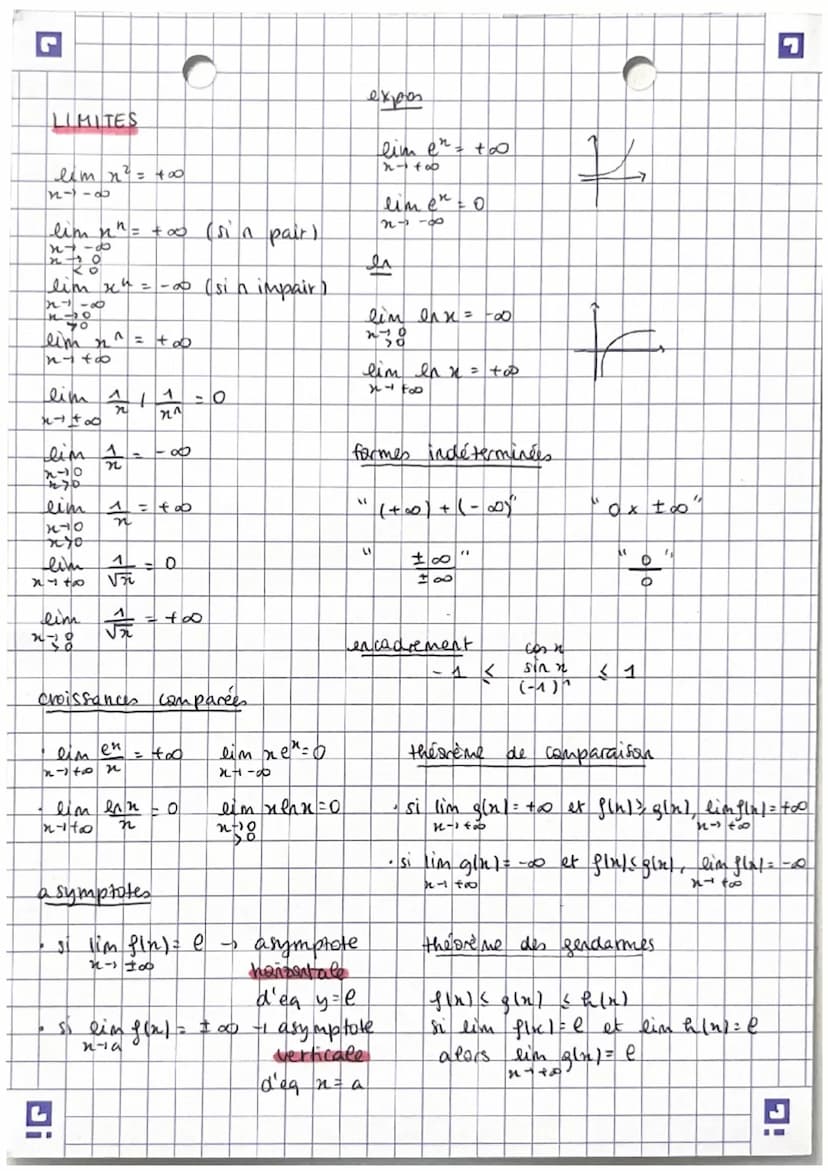 LIMITES
lim x² = +∞
x→-∞
lim xⁿ = +∞ (si n pair)
x→-∞
x→0
<0
lim xⁿ = -∞ (si n impair)
x→-∞
x→0
>0
lim xⁿ = +∞
x→+∞
lim 1/x / 1/xⁿ = 0
x→±∞
lim 1/x = -∞
x→0
x>0
lim 1/x = +∞
x→0
x>0
lim 1/√x = 0
x→+∞
lim 1/√x = +∞
x→0
>0
croissances comparées
· lim eˣ/x = +∞ lim xeˣ = 0
x→+∞ x→-∞
· lim ln x/x = 0 lim x ln x = 0
x→+∞ x→0
>0
asymptotes
· si lim f(x) = l → asymptote
x→±∞ horizontale
d'eq y = l
· si lim f(x) = ±∞ → asymptote
x→a verticale
d'eq x = a
expos
lim eˣ = +∞
x→+∞
lim eˣ = 0
x→-∞
ln
lim ln x = -∞
x→0
>0
lim ln x = +∞
x→+∞
formes indéterminées
" (+∞) + (-∞)" "0 x ±∞"
" ±∞/±∞ " " 0/0 "
encadrement
cos x
-1 ≤ sin x ≤ 1
(-1)ⁿ
théorème de comparaison
· si lim g(x) = +∞ et f(x) ≥ g(x), lim f(x) = +∞
x→+∞ x→+∞
· si lim g(x) = -∞ et f(x) ≤ g(x), lim f(x) = -∞
x→+∞ x→+∞
théorème des gendarmes
f(x) ≤ g(x) ≤ h(x)
si lim f(x) = l et lim h(x) = l
alors lim g(x) = l
x→+∞